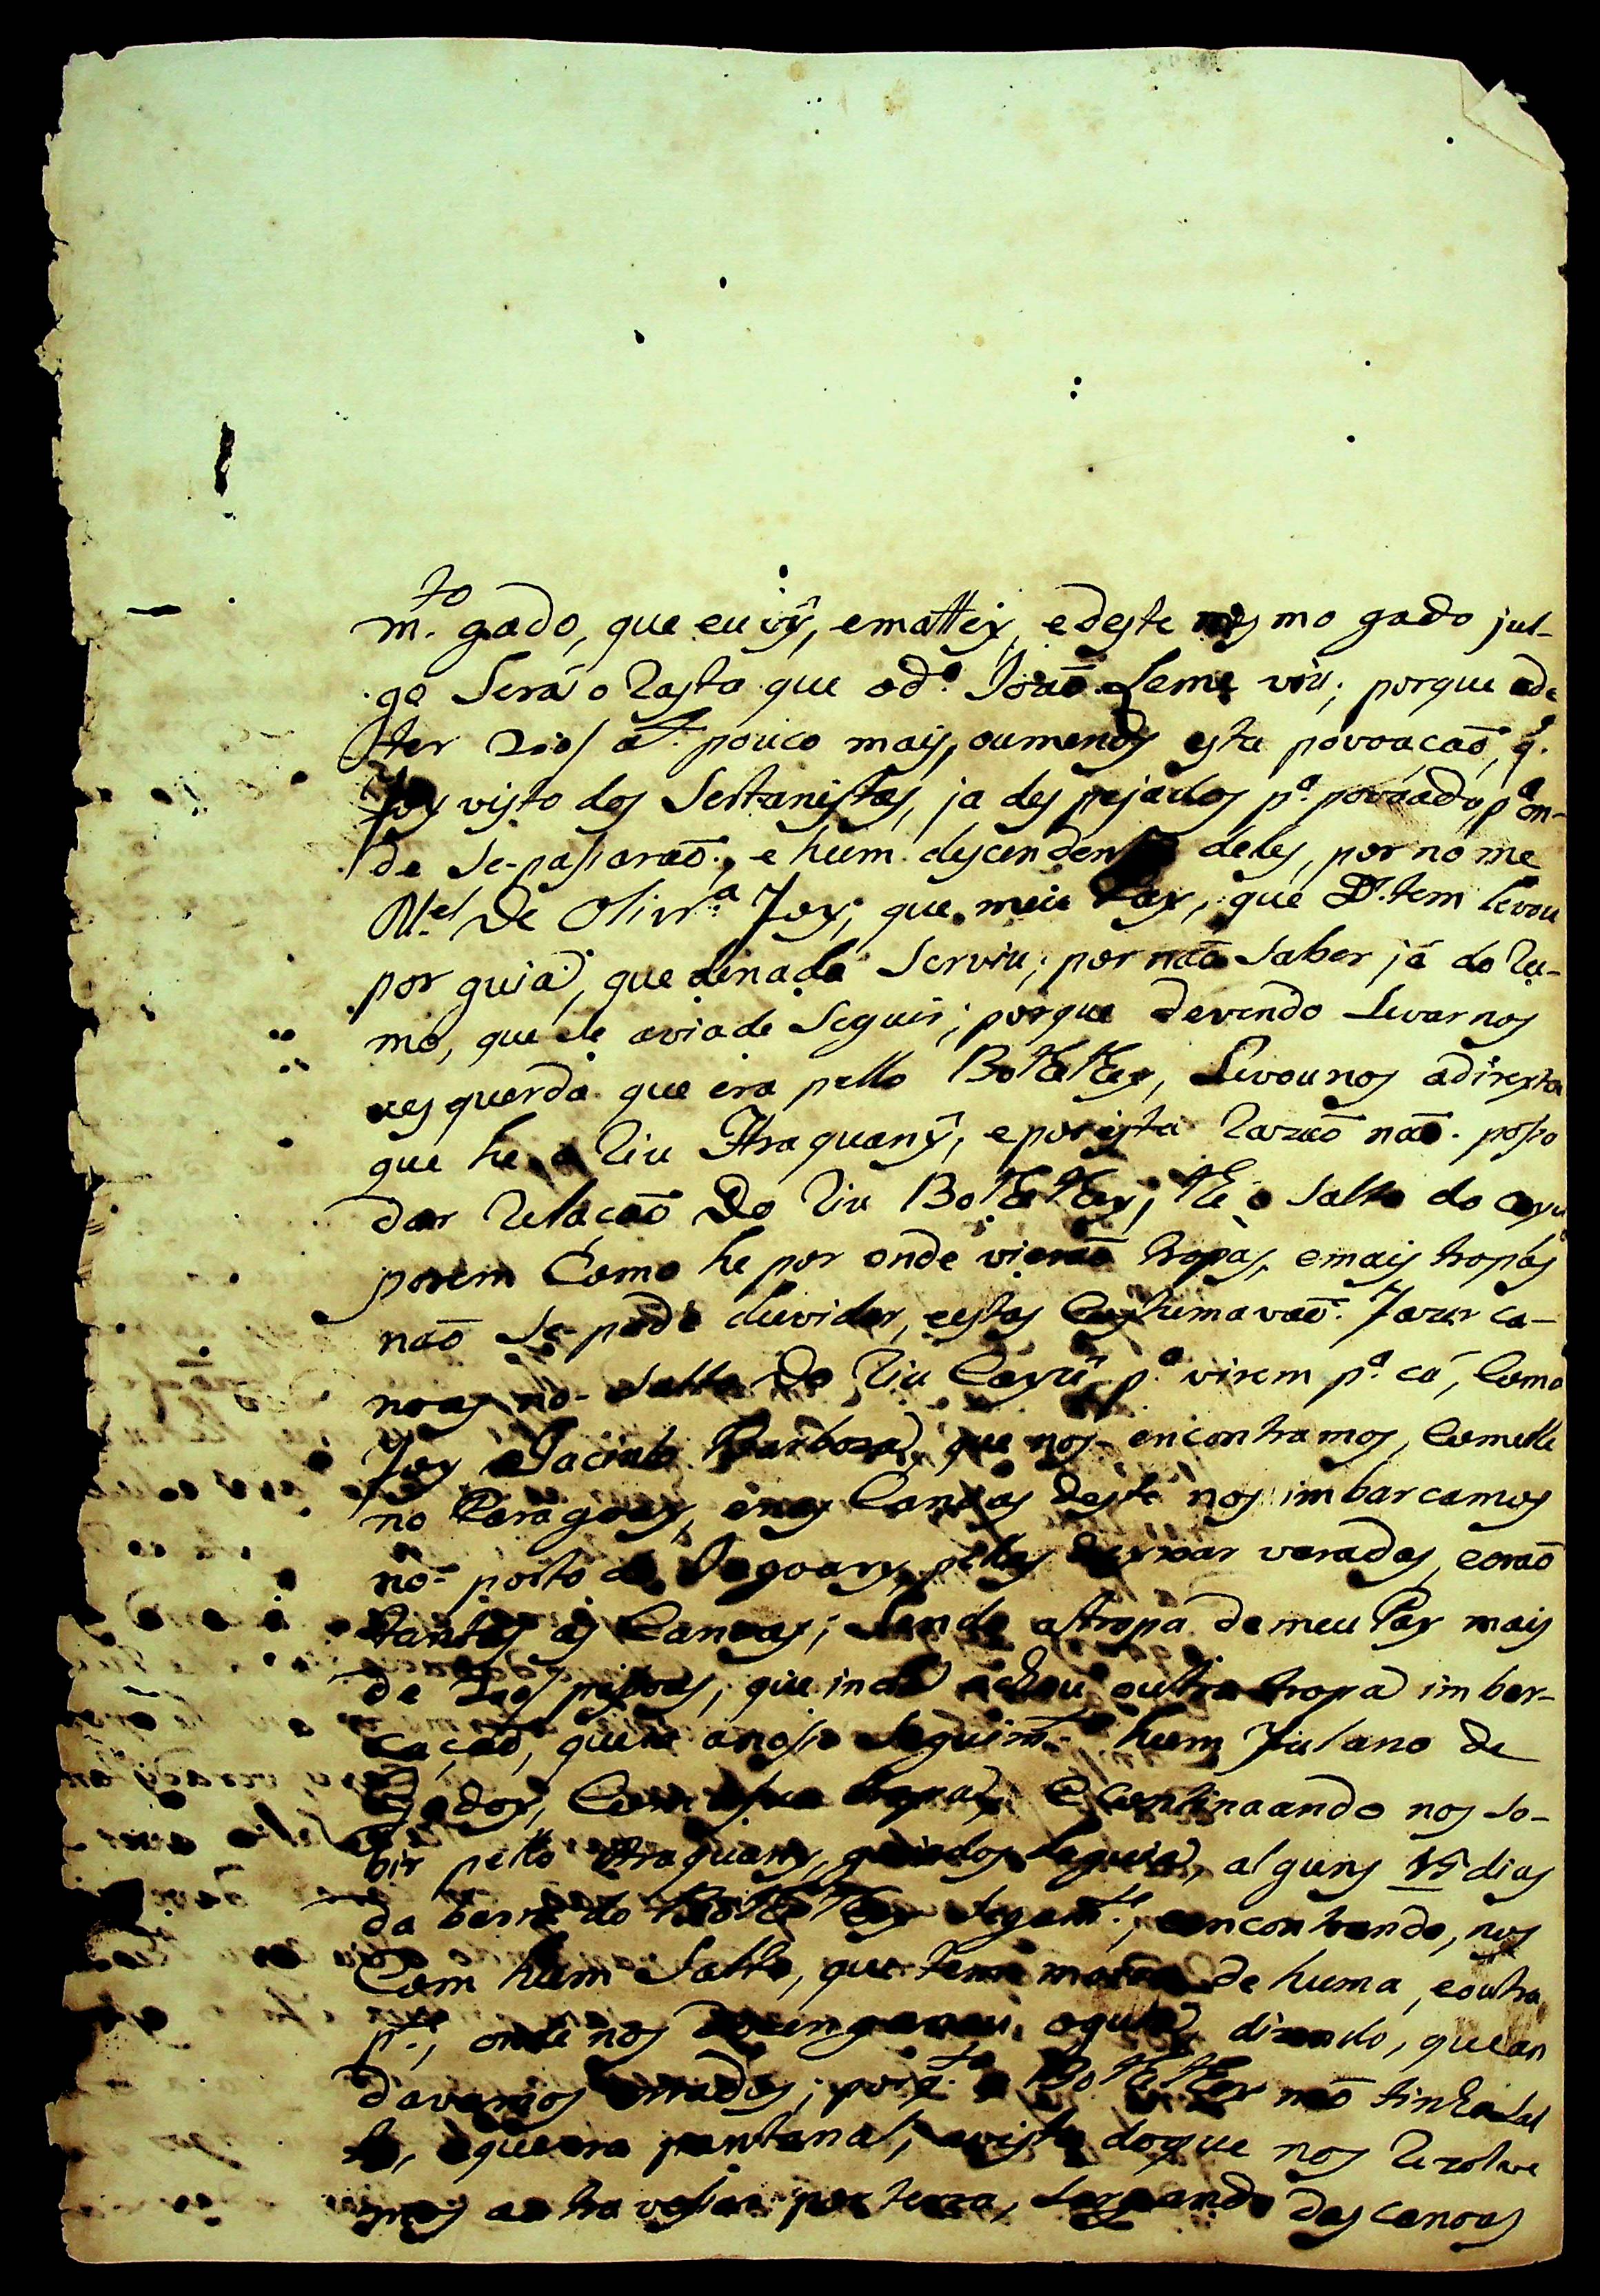 m.to gado, que eu vÿ, emattey, edeste mesmo gado jul-
go Será o Rasto que od.º Joaõ Leme viu; porque ade
ter 210/ a.s pouco mais, oumenos esta povoacaõ, q.
Foy visto dos Sertanistas, ja des pejados p.ª povoado, p.ª on-
de Se-passaraõ, e hum descendente deles, por nome
M.el De Olivr.ª Foy; que meu Pay, que D.s tem Levou
por guia, que denada Serviu; por naõ Saber já do Ru-
mo, que se aviade Seguir; porque devendo Levarnos
aesquerda que era pello Bottettey, Levounos adireyta
que he o Riu Araquanÿ, eporesta Razaõ naõ posso
dar Relaçaõ Do Riu Bottettey; tte o Salto do Cayu
porem Como he por onde vieraõ tropas, emais tropas
naõ Se-pode duvidar, eestas Costumavaõ Fazer ca-
noas no-Salto Do Riu Cayú p.ª virem p.ª cá, Como
Foy Jacinto Barboza, que nos-encontramos, Comelle
no Paragoay, enas Canoas deste nos imbarcamos
no-porto de pellas deyxar varadas, eeraõ
tantas as Canoas; Sendo atropa demeu Pay mais
de 200/ pessoas, que inda achou outra tropa imbar-
caçaõ, que anosso Seguim.to hum Fulano de
Godoy, Com Sua tropa; E Continaando nos So-
bir pello Araquany, guiados doguia, alguns 15 dias
da barra do Bottettey Segam.te, encontrando, nos
Com hum Salto, que tem morros de huma, eoutra
p.te, onde nos dezenganou oguia, dizendo, que an
davamos errados; porq.to o Bottettey naõ tinha Sal
to, eque era pantanal; avista doque nos Rezolve
mos a atravessar por terra, Largando das canoas